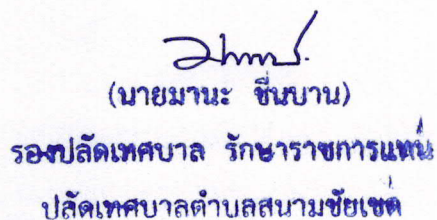 (นายมานะ ชื่นบาน)
รองปลัดเทศบาล รักษาราชการแทน
ปลัดเทศบาลตำบลสนามชัยเขต